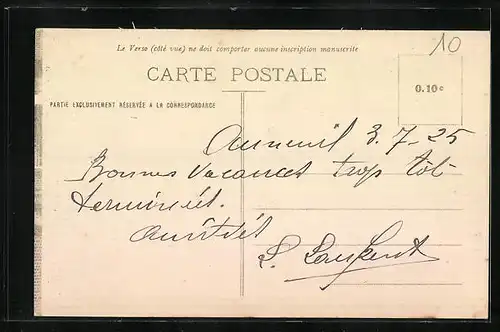 10
Le Verso (côté vue) ne doit comporter aucune inscription manuscrite
CARTE POSTALE
0.10c
PARTIE EXCLUSIVEMENT RÉSERVÉE A LA CORRESPONDANCE
Auneuil 3-7-25
Bonnes vacances trop tôt
terminées.
Amitiés